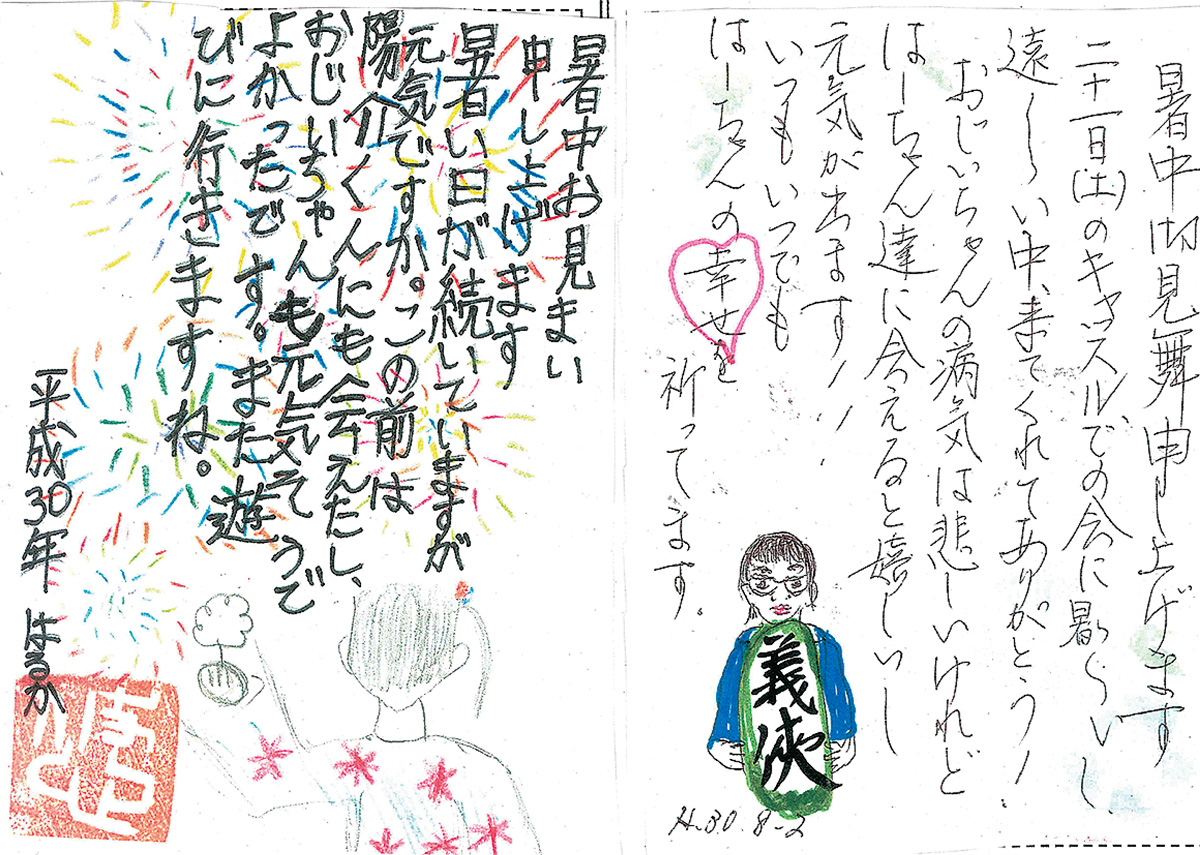 暑中御見舞申し上げます
二十一日(土)のキャッスルでの会に暑〜いし、
遠〜い中、来てくれてありがとう!
おじいちゃんの病気は悲しいけれど
はーちゃん達に会えると嬉しいし
元気が出ます!!
いつもいつでも
はーちゃんの幸せを
祈ってます。
義侠
H.30.8-2
暑中お見まい
申し上げます
暑い日が続いていますが
元気ですか。この前は
陽介くんにも会えたし、
おじいちゃんも元気そうで
よかったです。また遊
びに行きますね。
平成30年 はるか